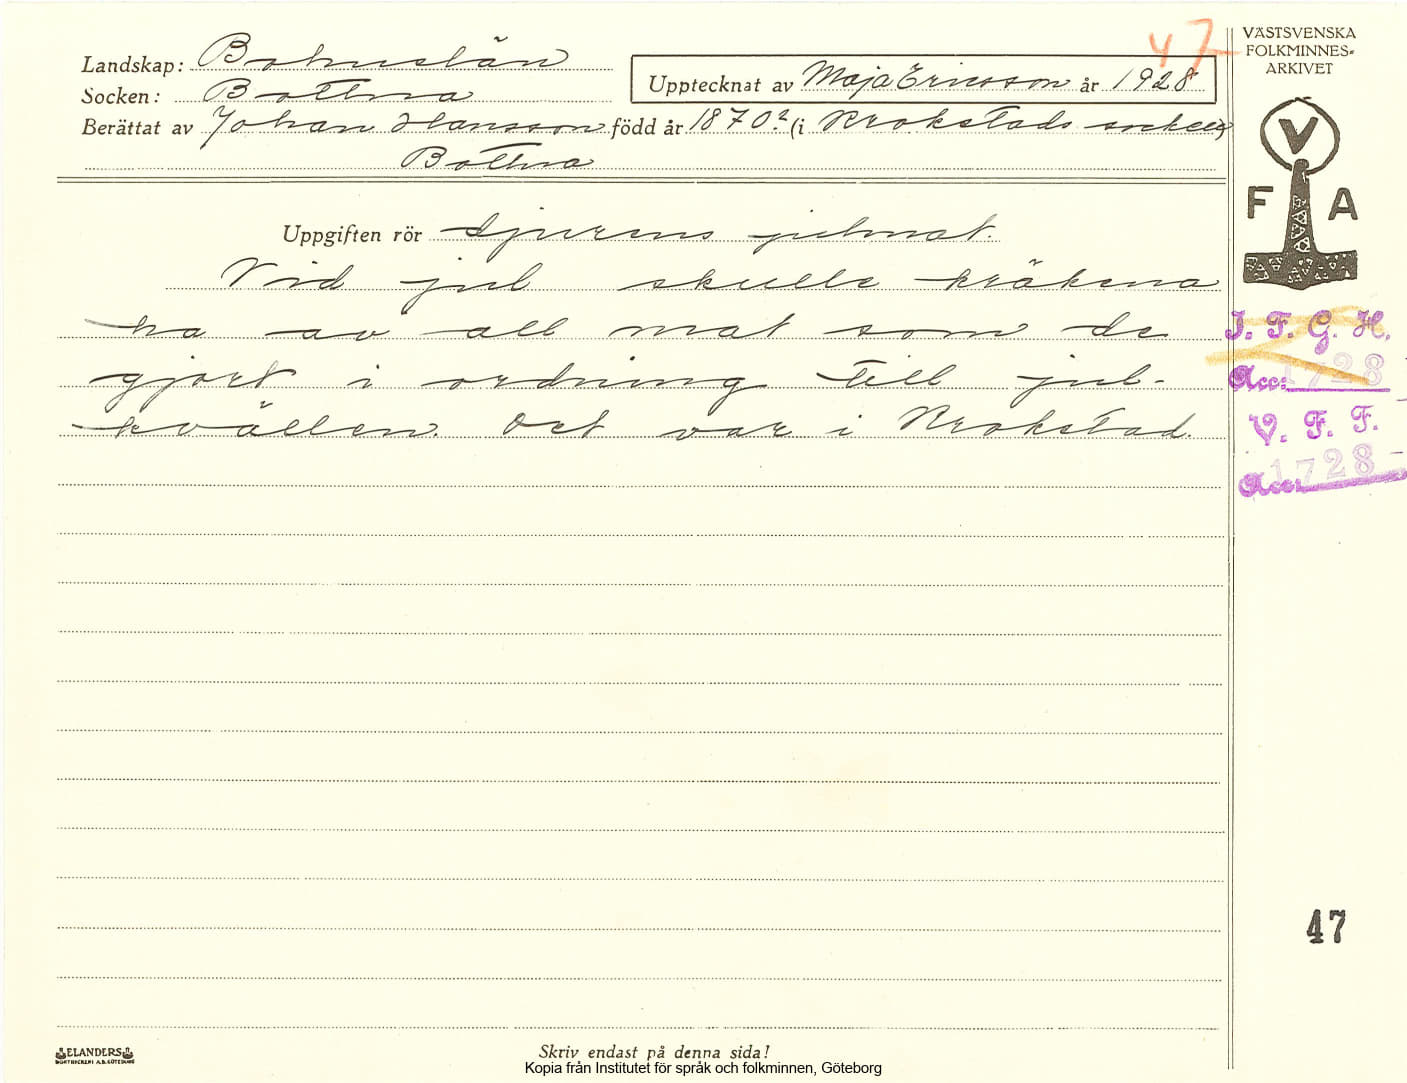 47
VÄSTSVENSKA
FOLKMINNES-
ARKIVET
Landskap: Bohuslän
Socken: Bottna
Upptecknat av Maja Ericsson år 1928
Berättat av Johan Hansson född år 1870? (i Krokstads socken)
Bottna
V
F A
Uppgiften rör djurens julmat.
Vid jul skulle kräkena
ha av all mat som de
gjort i ordning till jul-
kvällen. Det var i Krokstad.
I. F. G. H.
Acc: 1728
V. F. F.
Acc: 1728
47
ELANDERS
BOKTRYCKERI A.B. GÖTEBORG
Skriv endast på denna sida!
Kopia från Institutet för språk och folkminnen, Göteborg